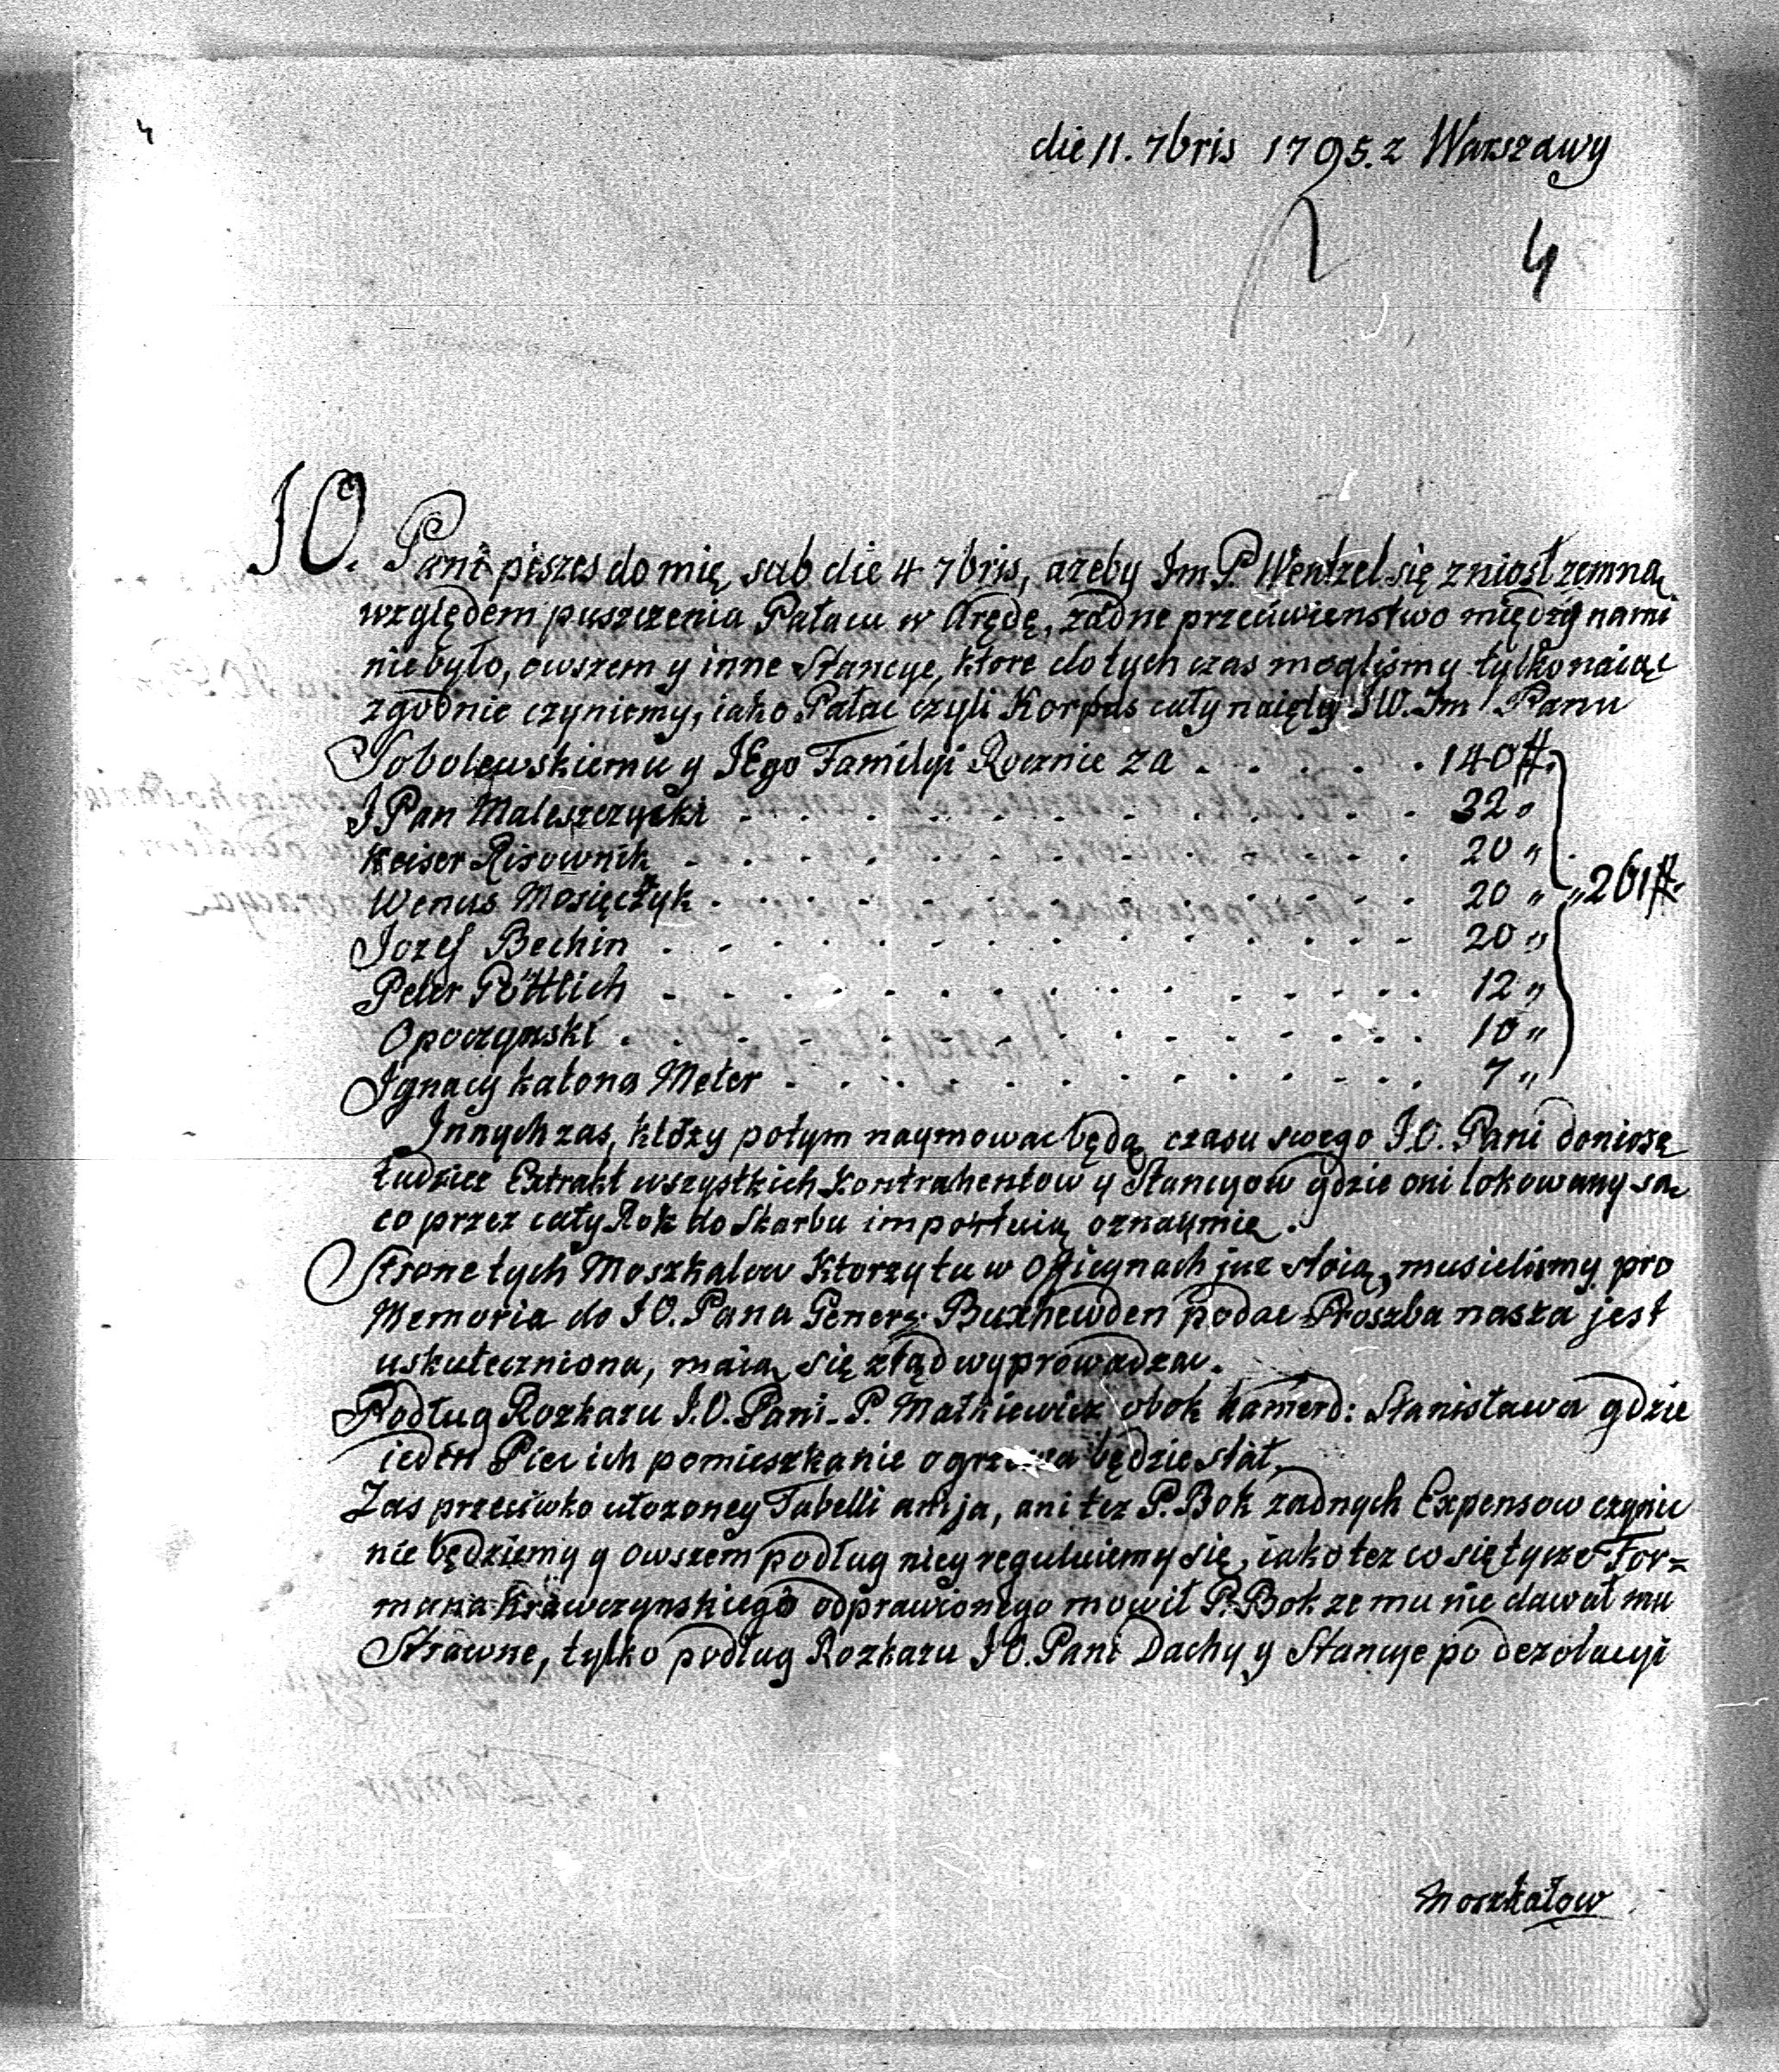 4
die 11. 7bris 1795. z Warszawy
4
JO. Pani piszes do mię sub die 4 7bris, azeby Im P. Wentzel się zniosł zemną
względem puszczenia Pałacu w Arędę, zadne przeciwienstwo między nami
niebyło, owszem y inne Stancye, ktore do tych czas mogliśmy tylko naiąc
zgodnie czyniemy, iako Pałac czyli Korpus cały naięty JW. Im Panu
Sobolewskiemu y JEgo Familyi Rocznie za . . . . . 140 #.
J Pan Maleszczycki . . . . . . . . . . . . 32 "
Keiser Risownik . . . . . . . . . . . . 20 "
Wenus Mosięczyk . . . . . . . . . . . . 20 " " 261 #.
Jozef Bechin . . . . . . . . . . . . . 20 "
Peter Göttlich . . . . . . . . . . . . . 12 "
Opoczynski . . . . . . . . . . . . . . 10 "
Jgnacy katona Meter . . . . . . . . . . . 7 "
Jnnych zas, ktorzy potym naymowac będą czasu swego J.O. Pani doniosę
tudziez Extrakt wszystkich Kontrahentow y Stancyow gdzie oni lokowany są
co przez cały Rok do Skarbu importuią oznaymię.
Strone tych Moszkalow Ktorzy tu w Officynach juz stoią, musielismy pro
Memoria do JO. Pana Gener: Buxhewden podac Proszba nasza jest
uskuteczniona, maią się ztąd wyprowadzac.
Podług Rozkazu J.O. Pani P. Matkiewicz obok kamerd: Stanisława gdzie
ieden Piec ich pomieszkanie będzie stał,
Zas przeciwko ułozoney Tabelli ani ja, ani tez P. Bok zadnych Expensow czynic
nie będziemy y owszem podług niey reguluiemy się, iako tez co się tycze For=
mana Krawczynskiego odprawionego mowił P. Bok ze mu nie dawał mu
Strawne, tylko podług Rozkazu JO. Pani Dachy y Stancye po dezolacyi
Moszkałow